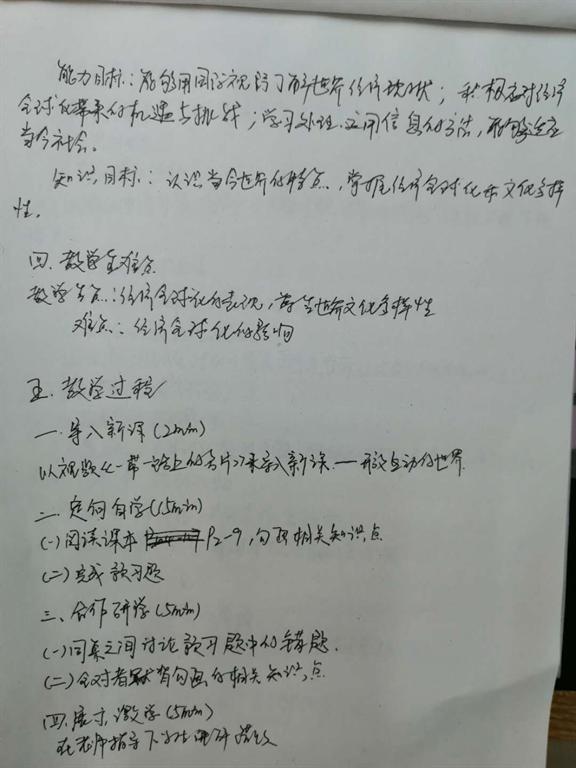 能力目标：能够用国际视野了解世界经济现状；积极应对经济
全球化带来的机遇与挑战；学习处理、应用信息的方法，能够适应
当今社会。
知识目标：认识当今世界的特点，掌握经济全球化和文化多样
性。
四、教学重难点
教学重点：经济全球化的表现，尊重世界文化多样性
难点：经济全球化的影响
五、教学过程
一、导入新课(2min)
以视频《一带一路上的名片》来导入新课——开放互动的世界.
二、定向自学(15min)
(一)阅读课本 P2-9，勾画相关知识点
(二)完成预习题
三、合作研学(5min)
(一)同桌之间讨论预习题中的错题.
(二)全对者背勾画的相关知识点
四.展示激学(5min)
在老师指导下